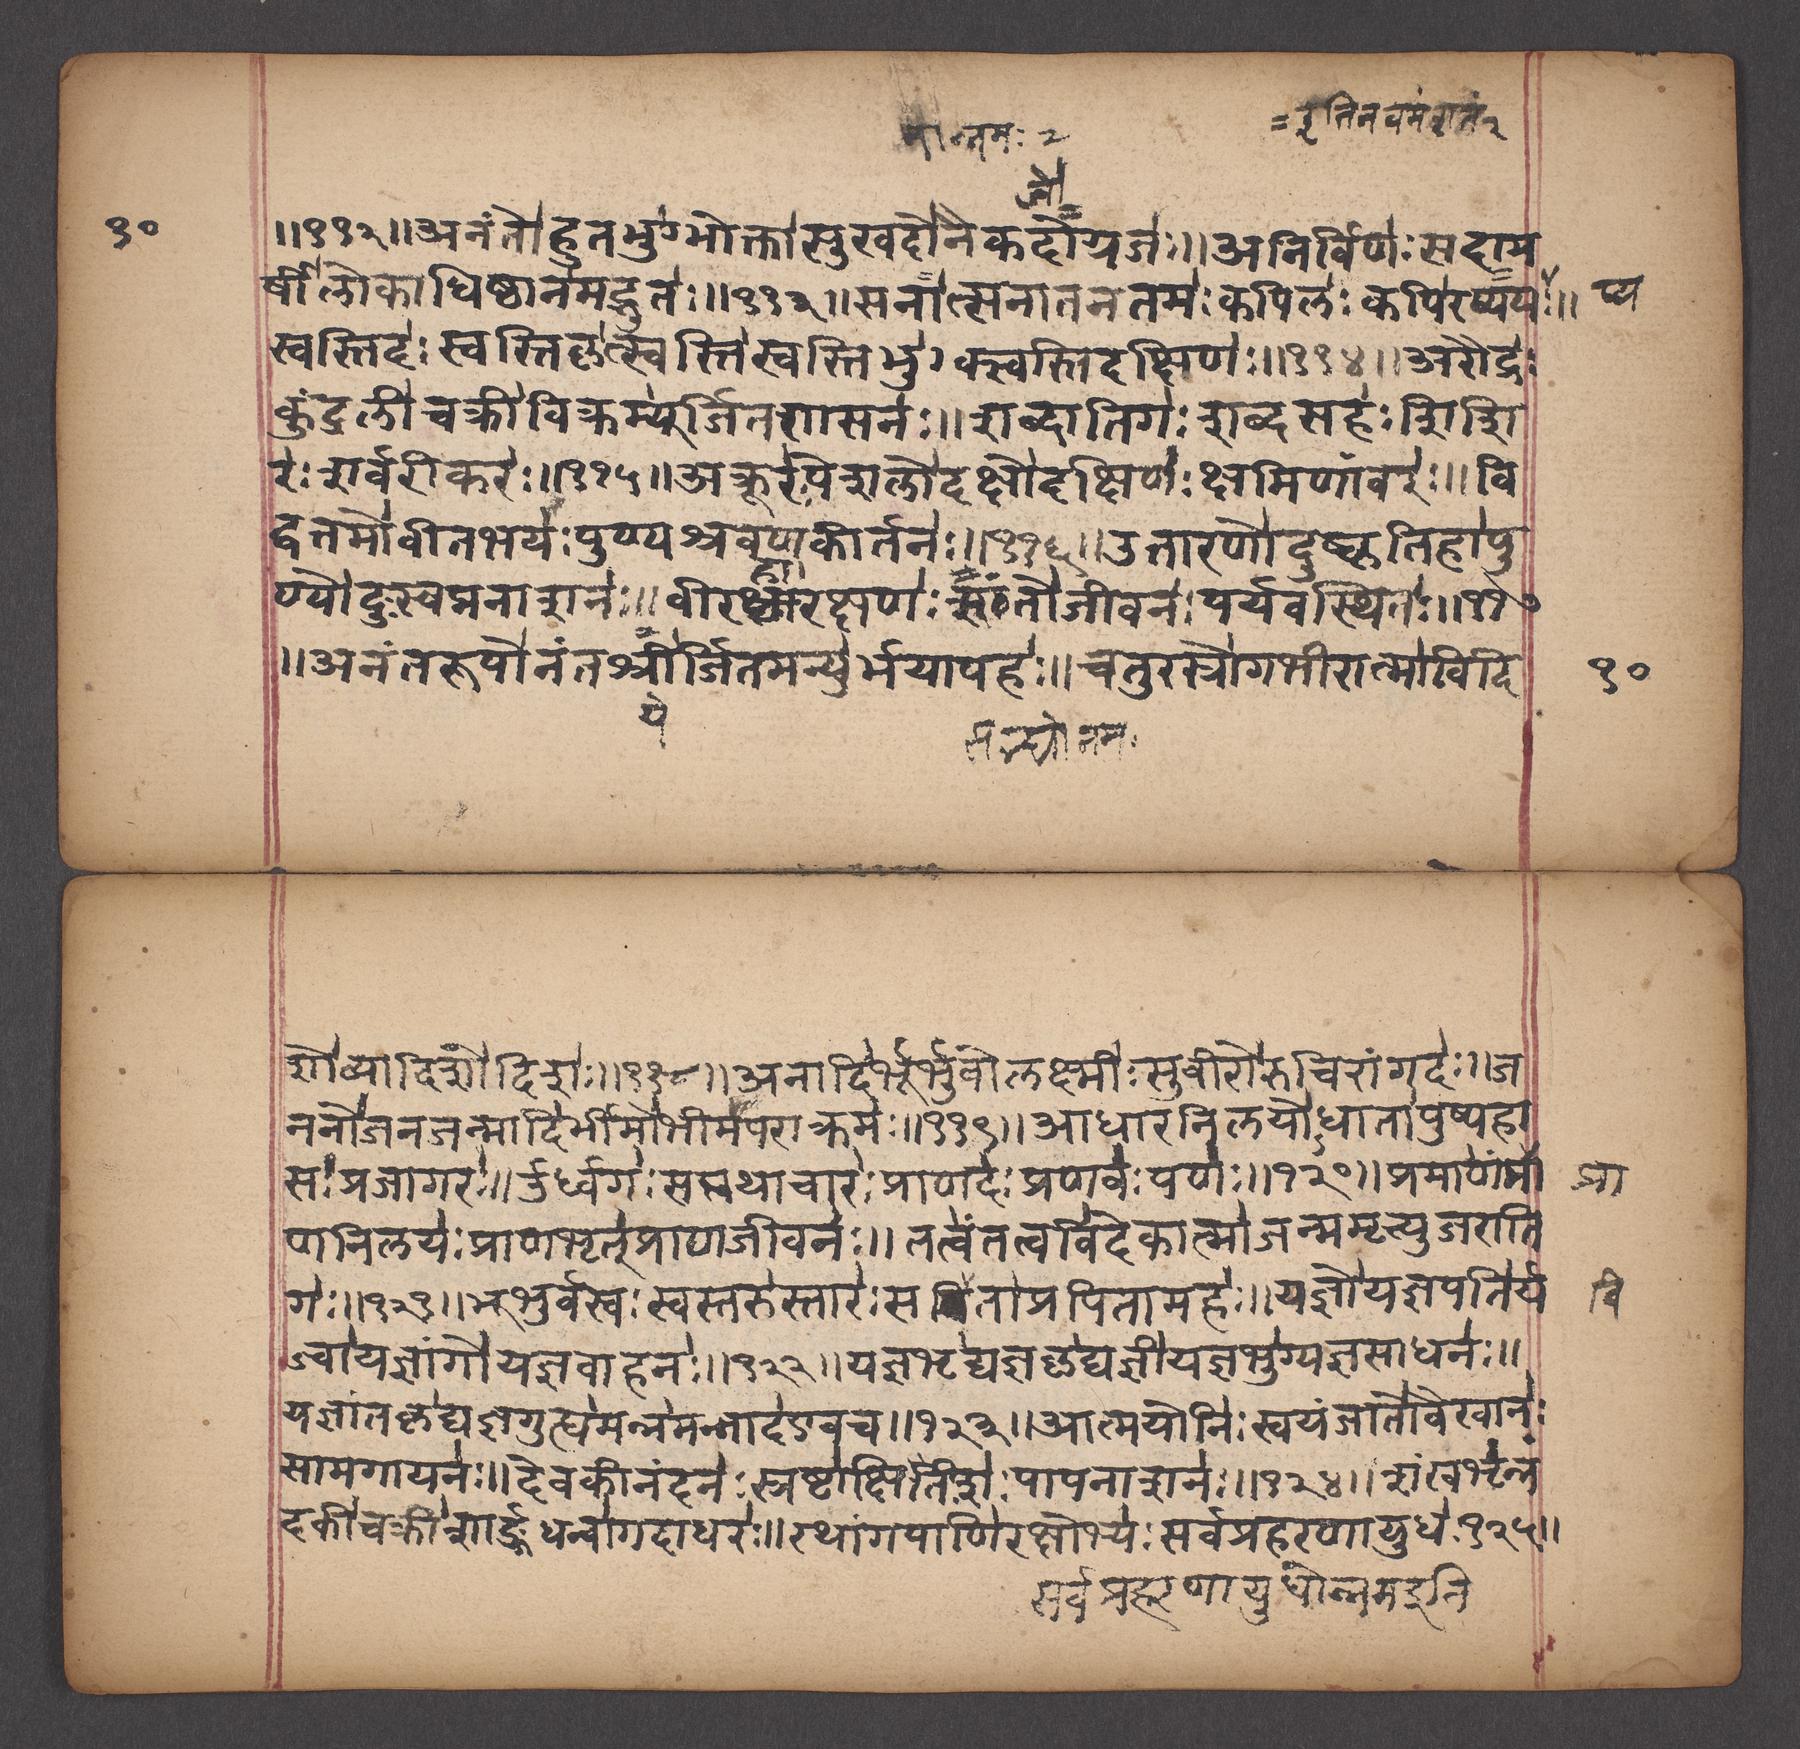 = इतिनवमंशतं२
न्तमः २
१० ॥११२॥अनंतोहुतभुग्भोक्तासुखदोनैकदोयजः॥अनिर्विणः सदाम
र्षीलोकाधिष्ठानमद्भुतः॥११३॥सनात्सनातनतमः कपिलः कपिरप्ययः॥ प्य
स्वस्तिदः स्वस्तिकृत्स्वस्तिस्वस्तिभुक्स्वस्तिदक्षिणः॥११४॥अरौद्रः
कुंडलीचक्रीविक्रम्यूर्जितशासनः॥शब्दातिगः शब्दसहः शिशि
रः शर्वरीकरः॥११५॥अक्रूरःपेशलोदक्षोदक्षिणः क्षमिणांवरः॥वि
द्वत्तमोवीतभयः पुण्यश्रवणकीर्तनः॥११६॥उत्तारणोदुष्कृतिहापु
ण्योदुःस्वप्ननाशनः॥वीरहारक्षणः संतोजीवनः पर्यवस्थितः॥११७
॥अनंतरूपोनंतश्रीर्जितमन्युर्भयापहः॥चतुरस्रोगभीरात्माविदि १०
शोव्यादिशोदिशः॥११८॥अनादिर्भूर्भुवोलक्ष्मीः सुवीरोरुचिरांगदः॥ज
ननोजनजन्मादिर्भीमोभीमपराक्रमः॥११९॥आधारनिलयोधातापुष्पहा
सः प्रजागरः॥ऊर्ध्वगः सत्पथाचारः प्राणदः प्रणवः पणः॥१२०॥प्रमाणंप्रा प्रा
णनिलयः प्राणभृत्प्राणजीवनः॥तत्वंतत्वविदेकात्माजन्ममृत्युजराति
गः॥१२१॥भूर्भुवस्वः स्वस्तरुस्तारः सविताप्रपितामहः॥यज्ञोयज्ञपतिर्य वि
ज्वायज्ञांगोयज्ञवाहनः॥१२२॥यज्ञभृद्यज्ञकृद्यज्ञीयज्ञभुग्यज्ञसाधनः॥
यज्ञांतकृद्यज्ञगुह्यमन्नमन्नादएवच॥१२३॥आत्मयोनिः स्वयंजातोवैखानः
सामगायनः॥देवकीनंदनः स्रष्टाक्षितीशः पापनाशनः॥१२४॥शंखभृन्नं
दकीचक्रीशार्ङ्गधन्वागदाधरः॥रथांगपाणिरक्षोभ्यः सर्वप्रहरणायुधः१२५॥
सर्वप्रहरणायुधोन्नमइति